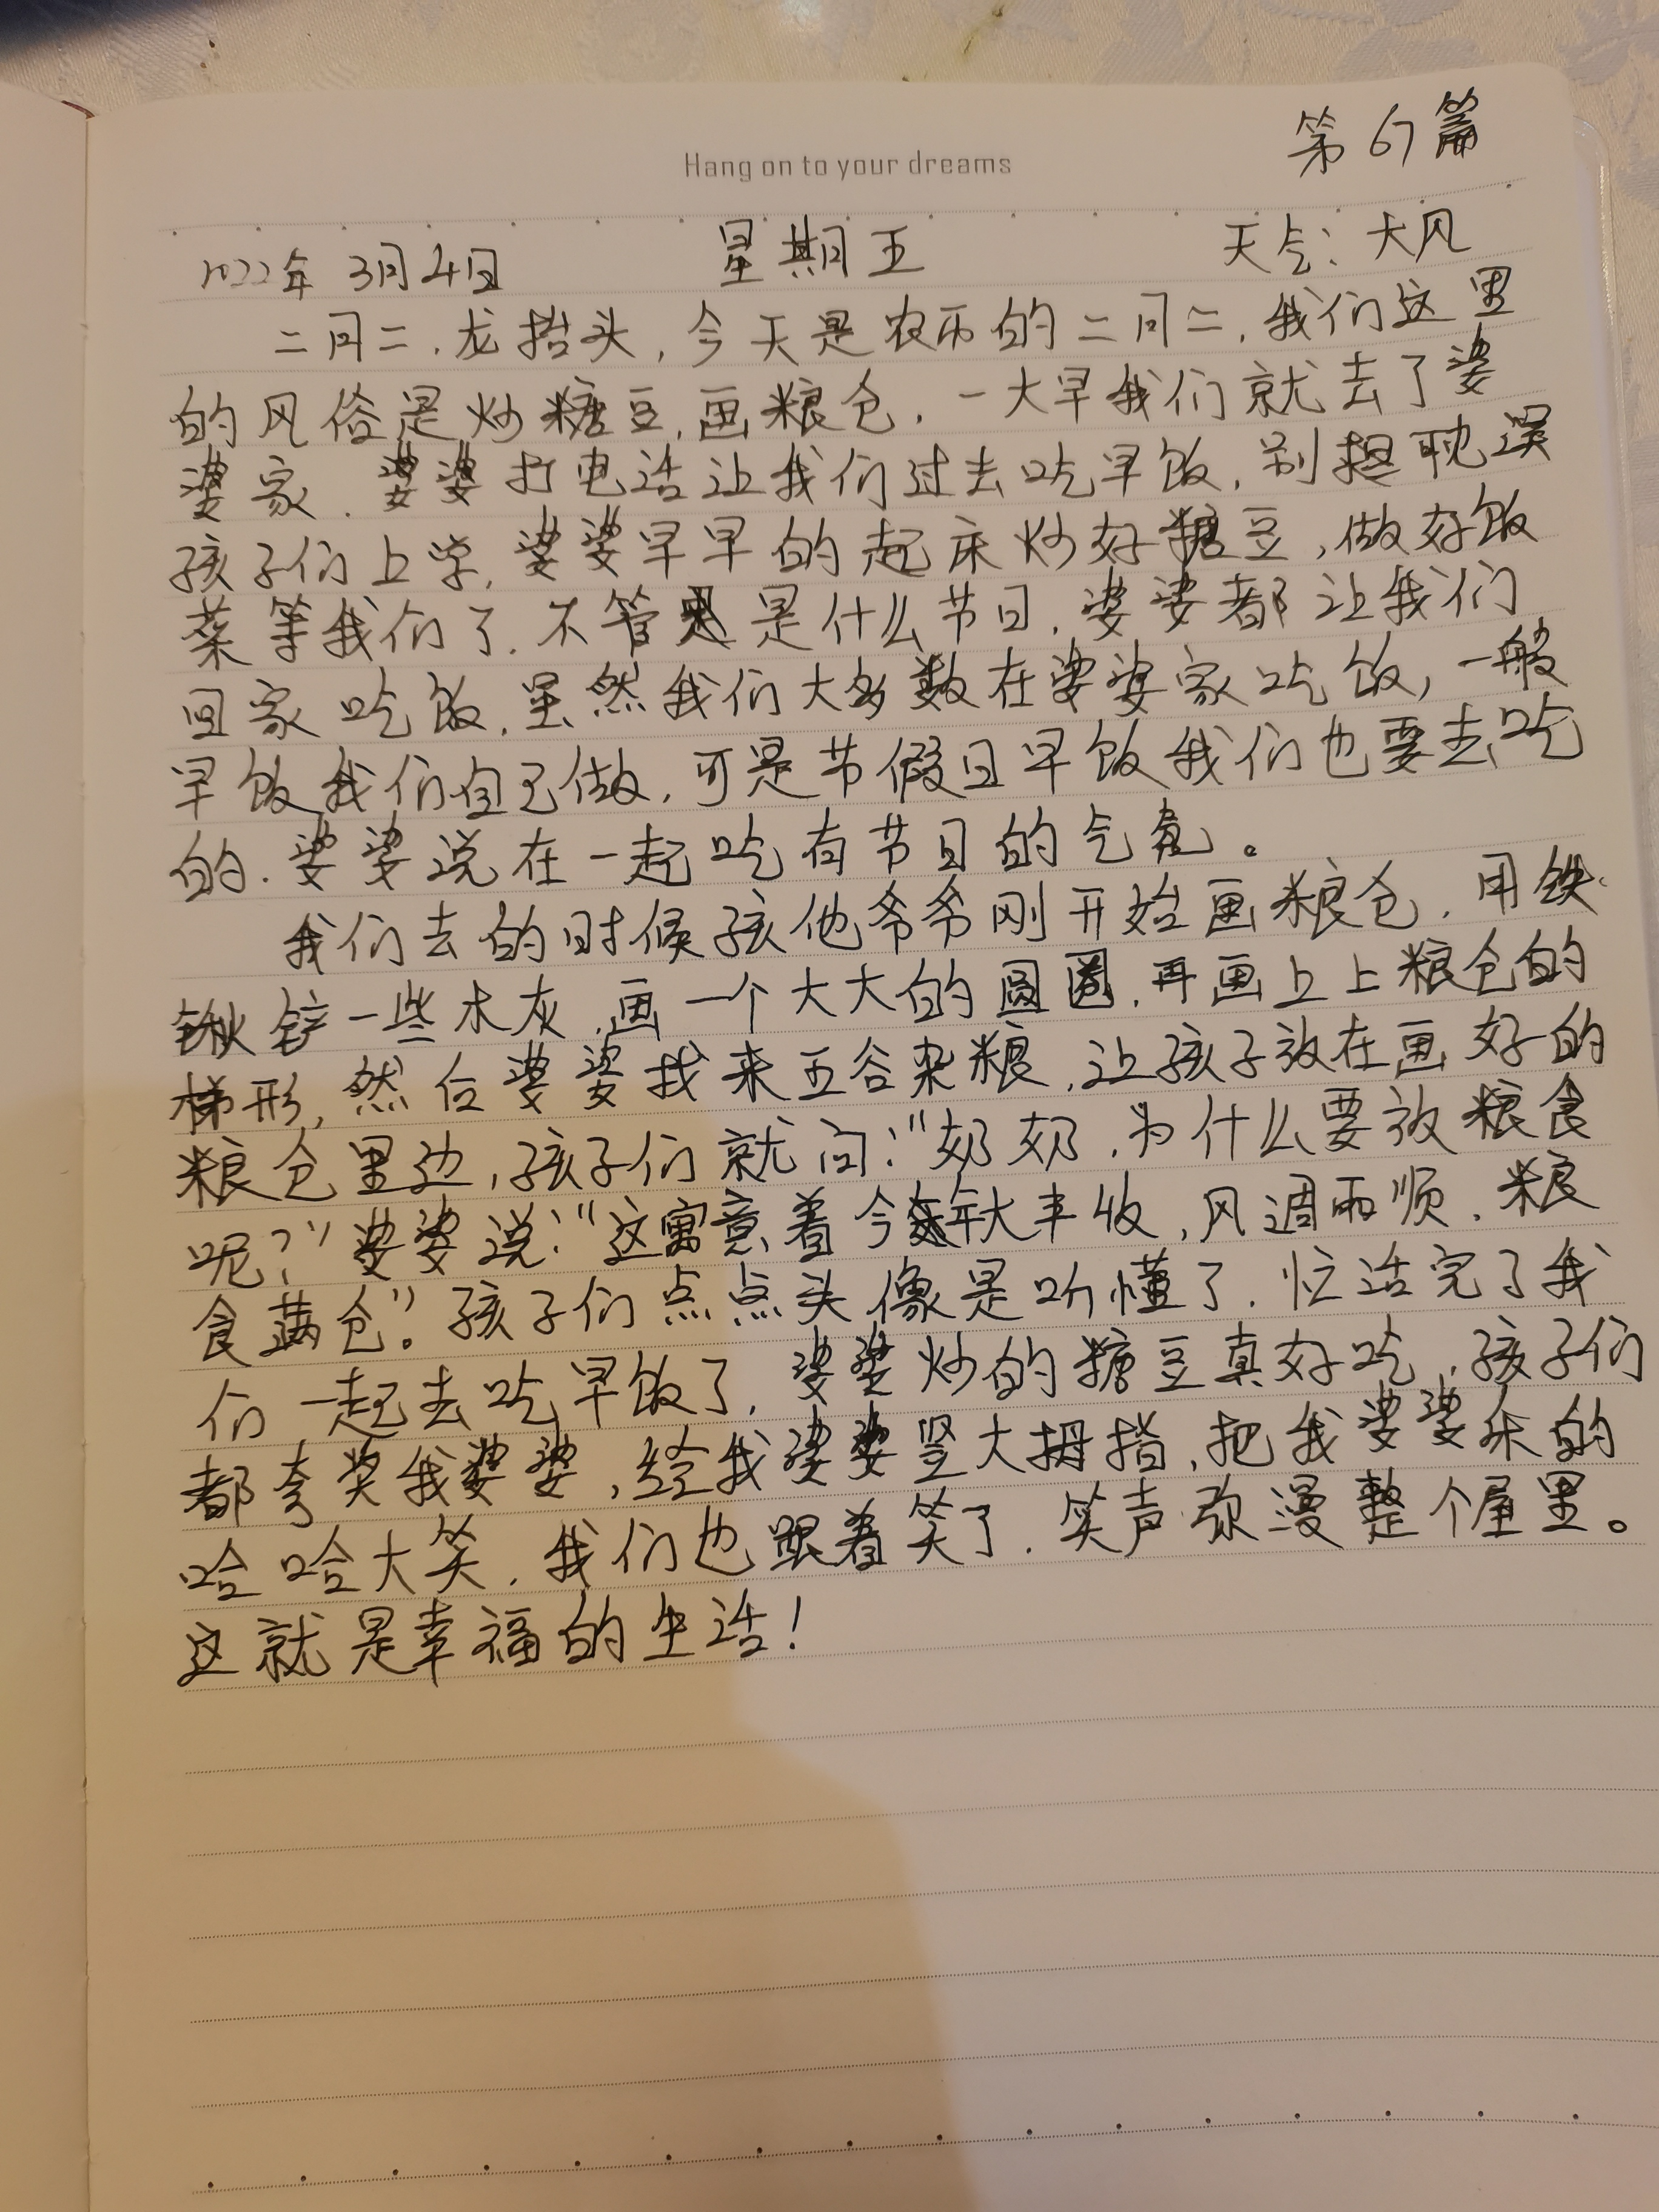 第67篇
Hang on to your dreams
2022年 3月4日 星期五 天气：大风
二月二，龙抬头，今天是农历的二月二，我们这里
的风俗是炒糖豆，画粮仓，一大早我们就去了婆
婆家．婆婆打电话让我们过去吃早饭，别耽误
孩子们上学，婆婆早早的起床炒好糖豆，做好饭
菜等我们了．不管是什么节日，婆婆都让我们
回家吃饭，虽然我们大多数在婆婆家吃饭，一般
早饭我们自己做，可是节假日早饭我们也要去吃
的．婆婆说在一起吃有节日的气氛。
我们去的时候孩他爷爷刚开始画粮仓．用铁
锹铲一些木灰，画一个大大的圆圈，再画上上粮仓的
梯形，然后婆婆找来五谷杂粮，让孩子放在画好的
粮仓里边，孩子们就问：“奶奶，为什么要放粮食
呢？”婆婆说：“这寓意着今年大丰收，风调雨顺．粮
食满仓”。孩子们点点头像是听懂了．忙活完了我
们一起去吃早饭了，婆婆炒的糖豆真好吃，孩子们
都夸奖我婆婆，给我婆婆竖大拇指，把我婆婆乐的
哈哈大笑，我们也跟着笑了．笑声弥漫整个屋里。
这就是幸福的生活！